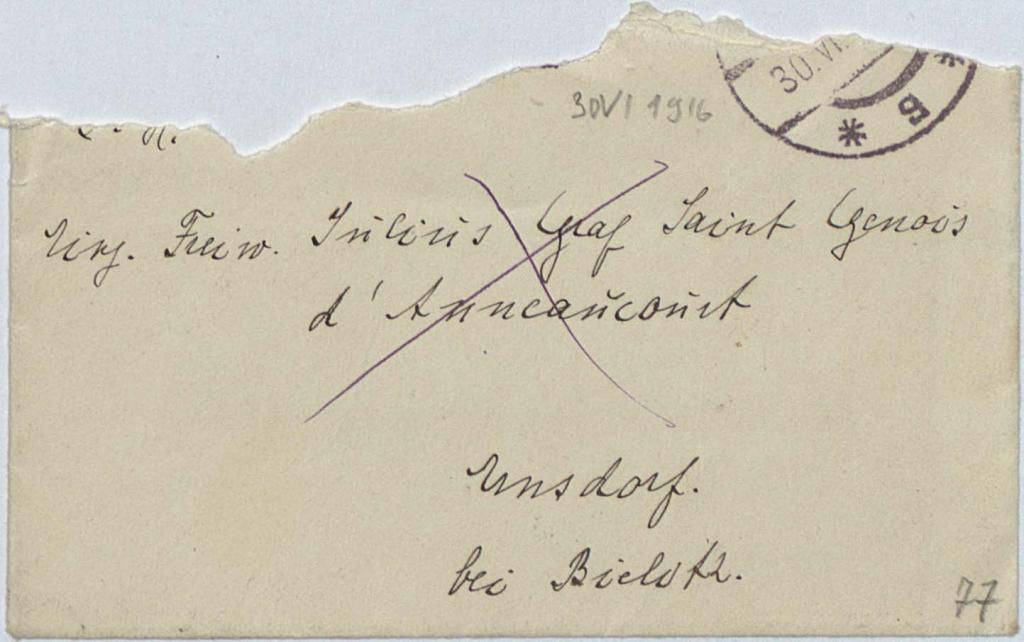 30.VI.
* 5 *
30 VI 1916
Einj. Freiw. Julius Graf Saint Genois
d'Anneaucourt
Ernsdorf.
bei Bielitz.
77